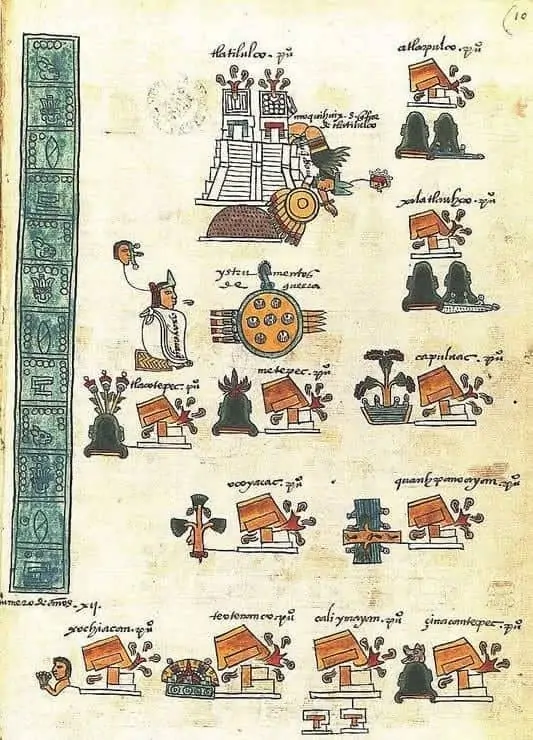 10
tlatilulco. pũ
atlapulco. pũ
moquihuix. señor
de tlatilulco
xalatlauhco. pũ
ystrumentos
de guerra
tlacotepec. pũ
metepec. pũ
capulac. pũ
ocoyacac. pũ
quauhpanoayan. pũ
numero de años. xij.
xochiacan. pũ
teotenanco. pũ
caliymayan. pũ
çinacantepec. pũ